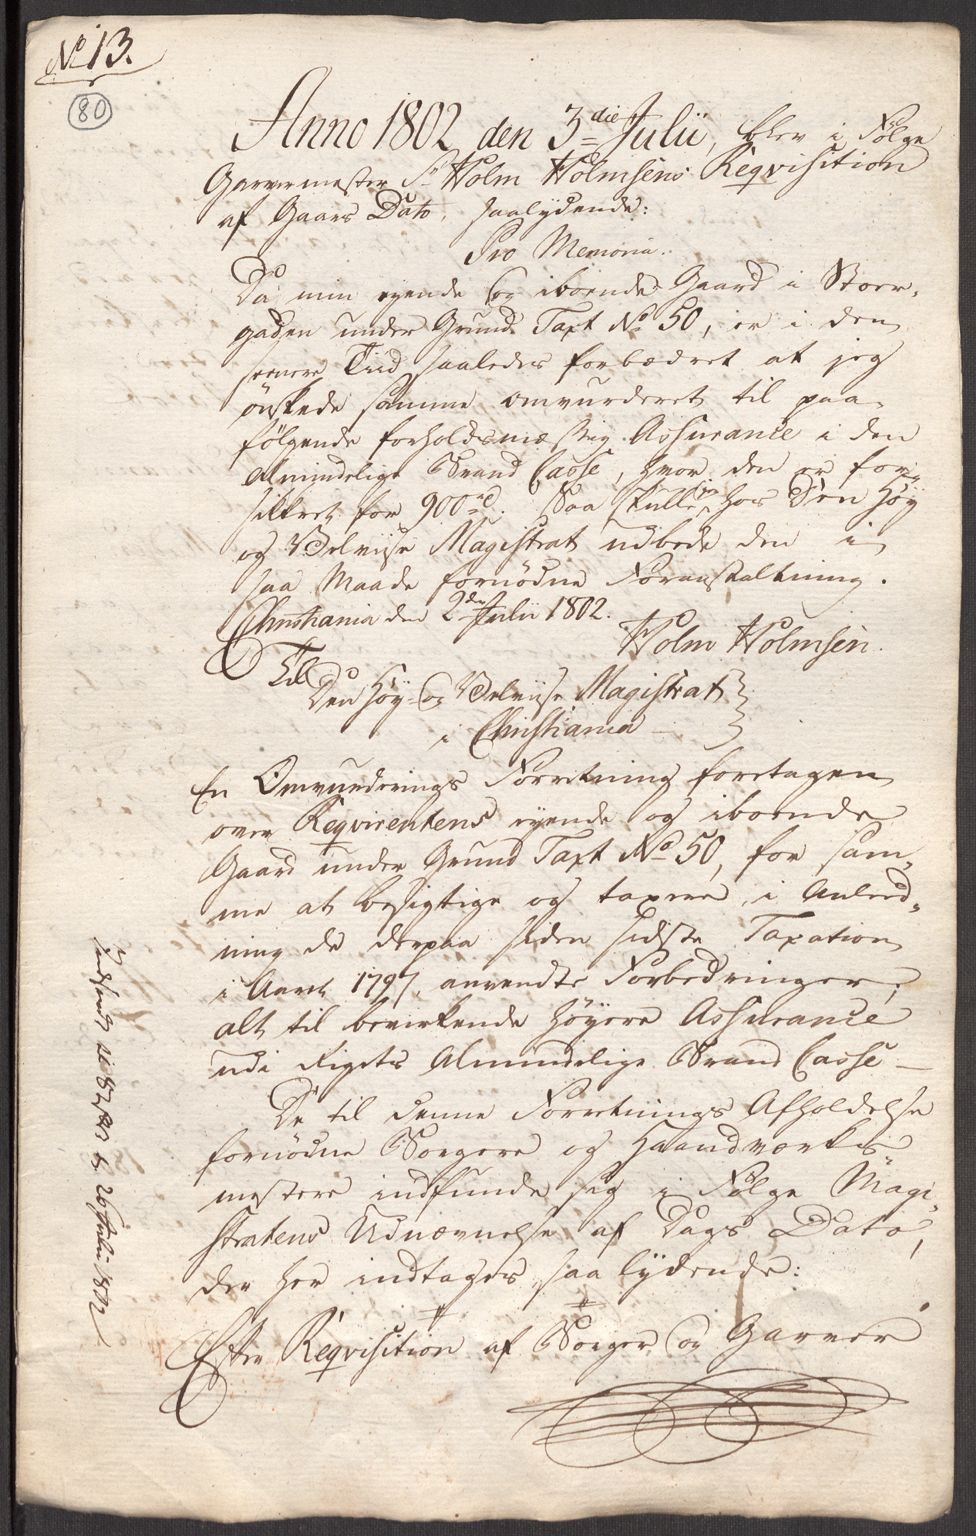 No 13.
80
Anno 1802 den 3die Julii, blev i Følge
Garvermester Sr Holm Holmsens Reqvisition
af Gaars Dato, saalydende:
Pro Memoria.
Da min eyende og iboende Gaard i Stor-
gaden under Grund Taxt No 50, er i den
senere Tiid saaledes forbædret at jeg
ønskede samme omvurderet til paa-
følgende forholdsmæssig Assurance i den
Almindelige Brand Casse, hvor den er for-
sikkret for 900rd. Saa skulle hos Den Høy
og Velviise Magistrat udbede den i
saa Maade fornødne Foranstaltning.
Christiania den 2den Julii 1802.
Holm Holmsen.
Til
Den Høy og Velviise Magistrat
i Christiania
En Omvurderings Forretning foretagen
over Reqvirentens eyende og iboende
Gaard under Grund Taxt No 50, for sam-
me at besigtige og taxere, i Anled-
ning de derpaa siden sidste Taxation
i Aaret 1797, anvendte Forbedringer,
alt til bevirkende høyere Assurance
udi Rigets Almindelige Brand Casse
De til denne Forretnings Afholdelse
fornødne Borgere og Haandværks
mestere indfunde sig i Følge Magi-
stratens Udnævnelse af Dags Dato,
der her indtages saa lydende:
Efter Reqvisition af Borger og Garver
Indsendt 26 Julii 1802